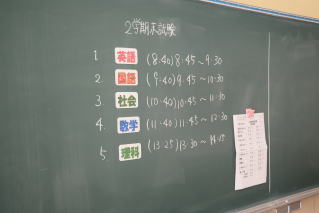 2学期末試験
1. 英語 (8:40) 8:45～9:30
2. 国語 (9:40) 9:45～10:30
3 社会 (10:40) 10:45～11:30
4. 数学 (11:40) 11:45～12:30
5. 理科 (13:25) 13:30～14:15